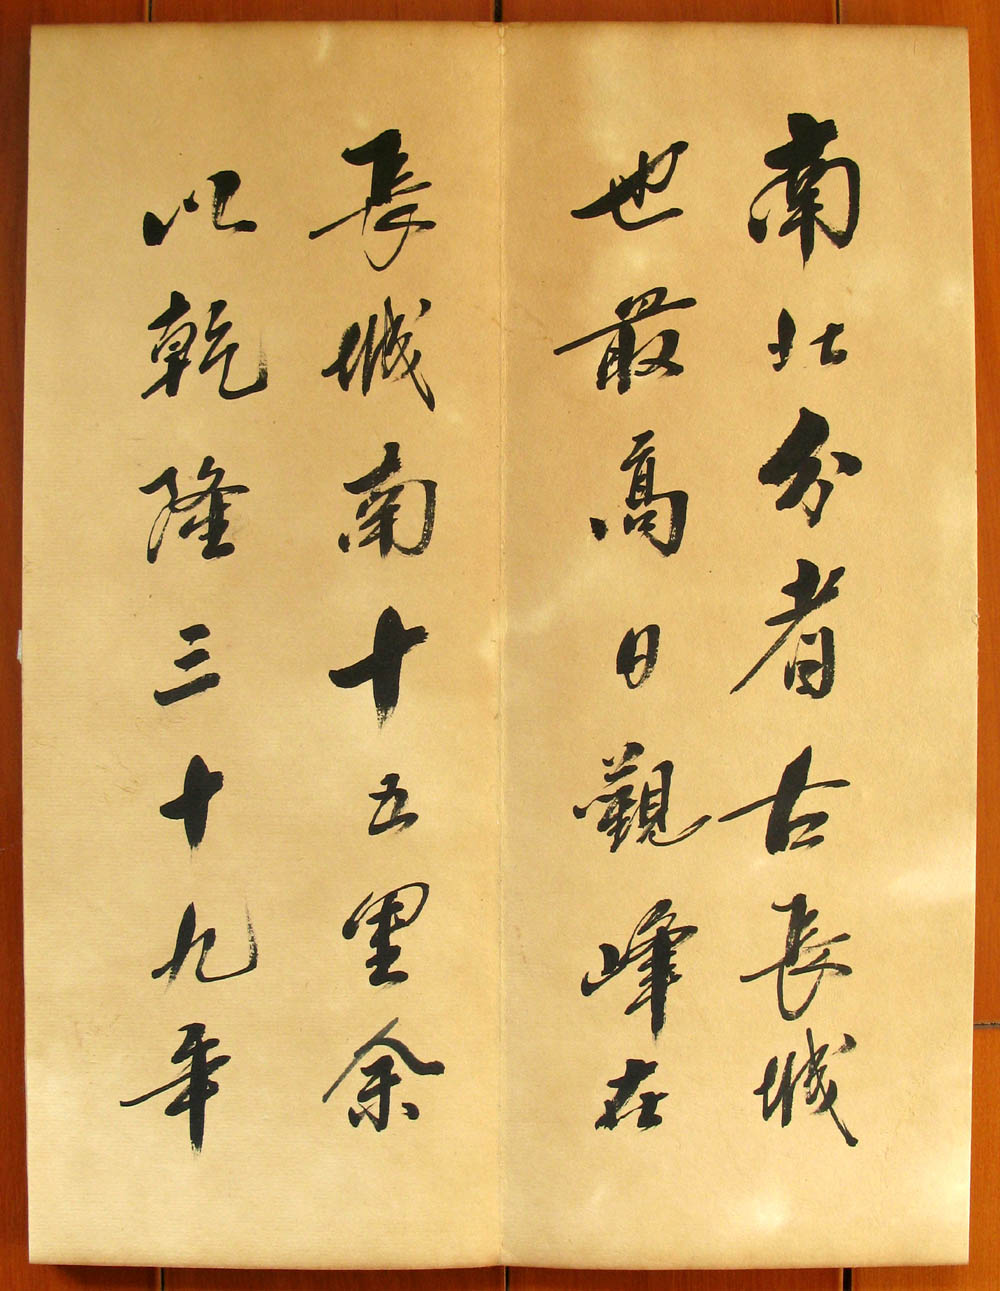 南北分者古長城
也最高日觀峰在
長城南十五里余
以乾隆三十九年